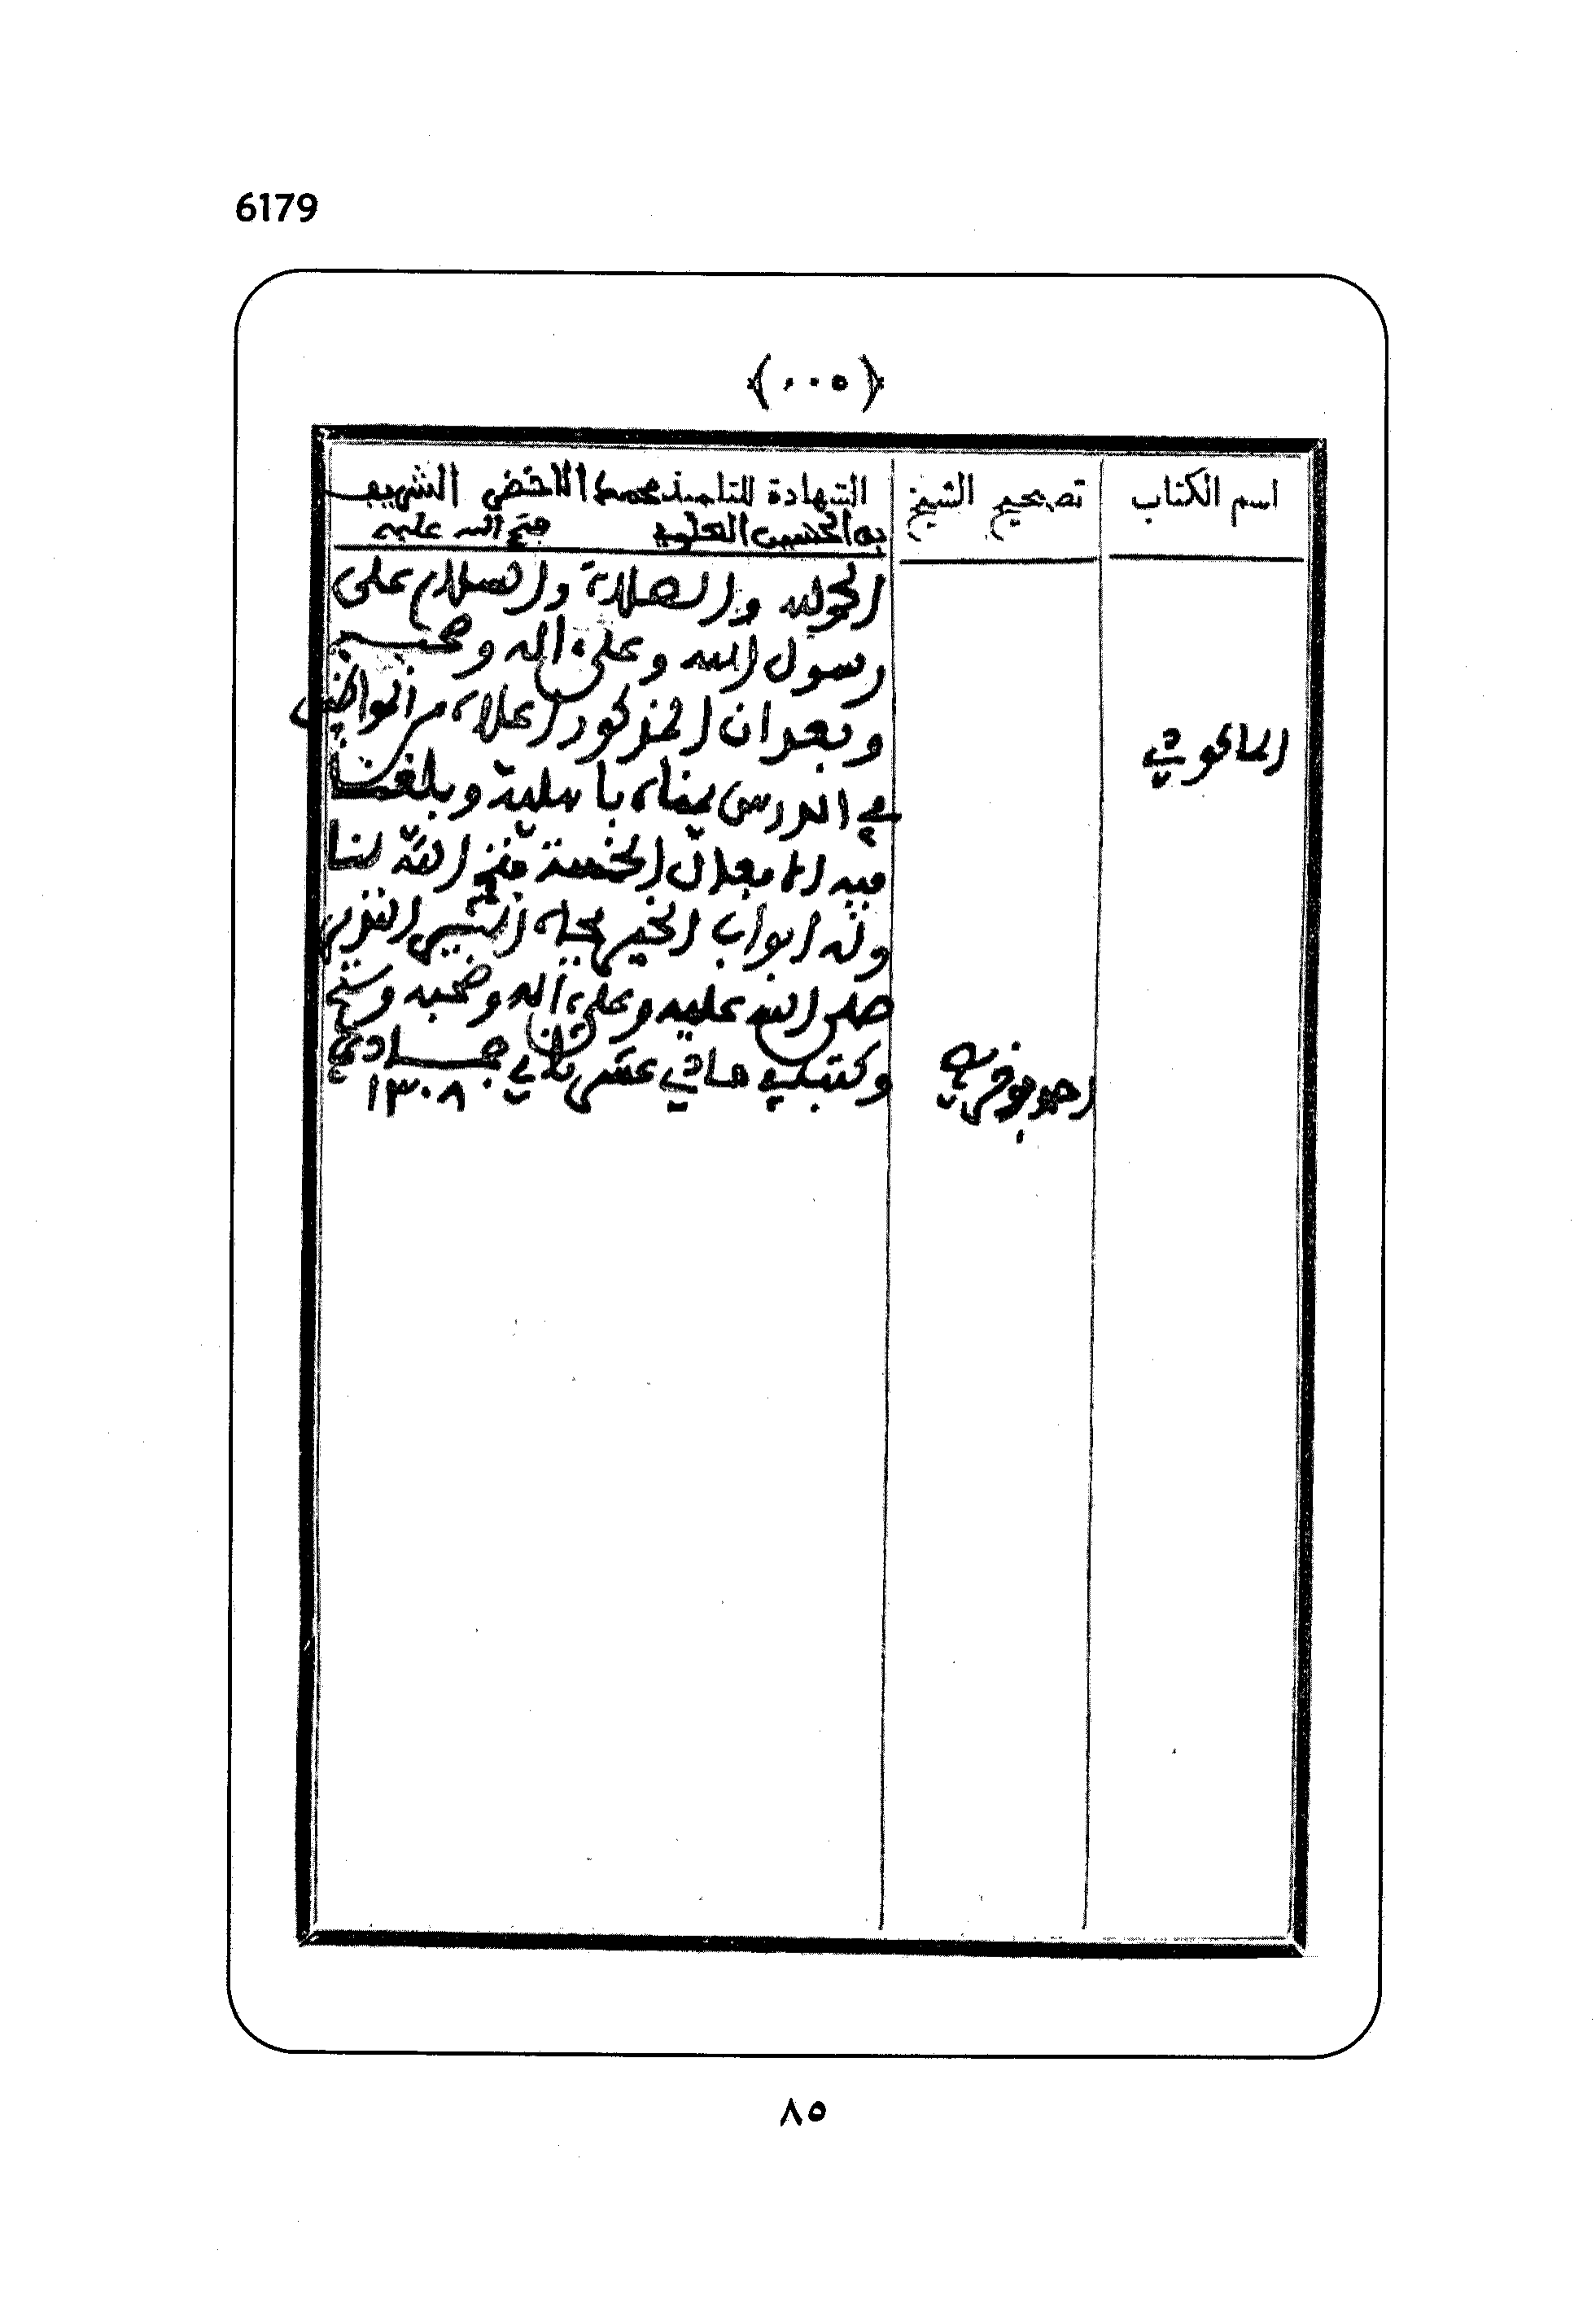 6179
﴿٠٠٥﴾
اسم الكتاب
تصحيح الشيخ
الشهادة للتلميذ محمد الاخضر الشريف
بن الحسين العلوي فتح الله عليه
الحمد لله والصلاة والسلام على
رسول الله وعلى اله وصحبه
وبعد ان المذكور اعلاه من المواظبين
في الدرس بباسلية وبلغنا
فيه الافعال الخمسة فتح الله لنا
وله ابواب الخير بجاه البشير النذير
صلى الله عليه وعلى اله وصحبه وسلم
وكتب في حادي عشر ثاني جمادي
١٣٠٨
الماكودي
٨٥